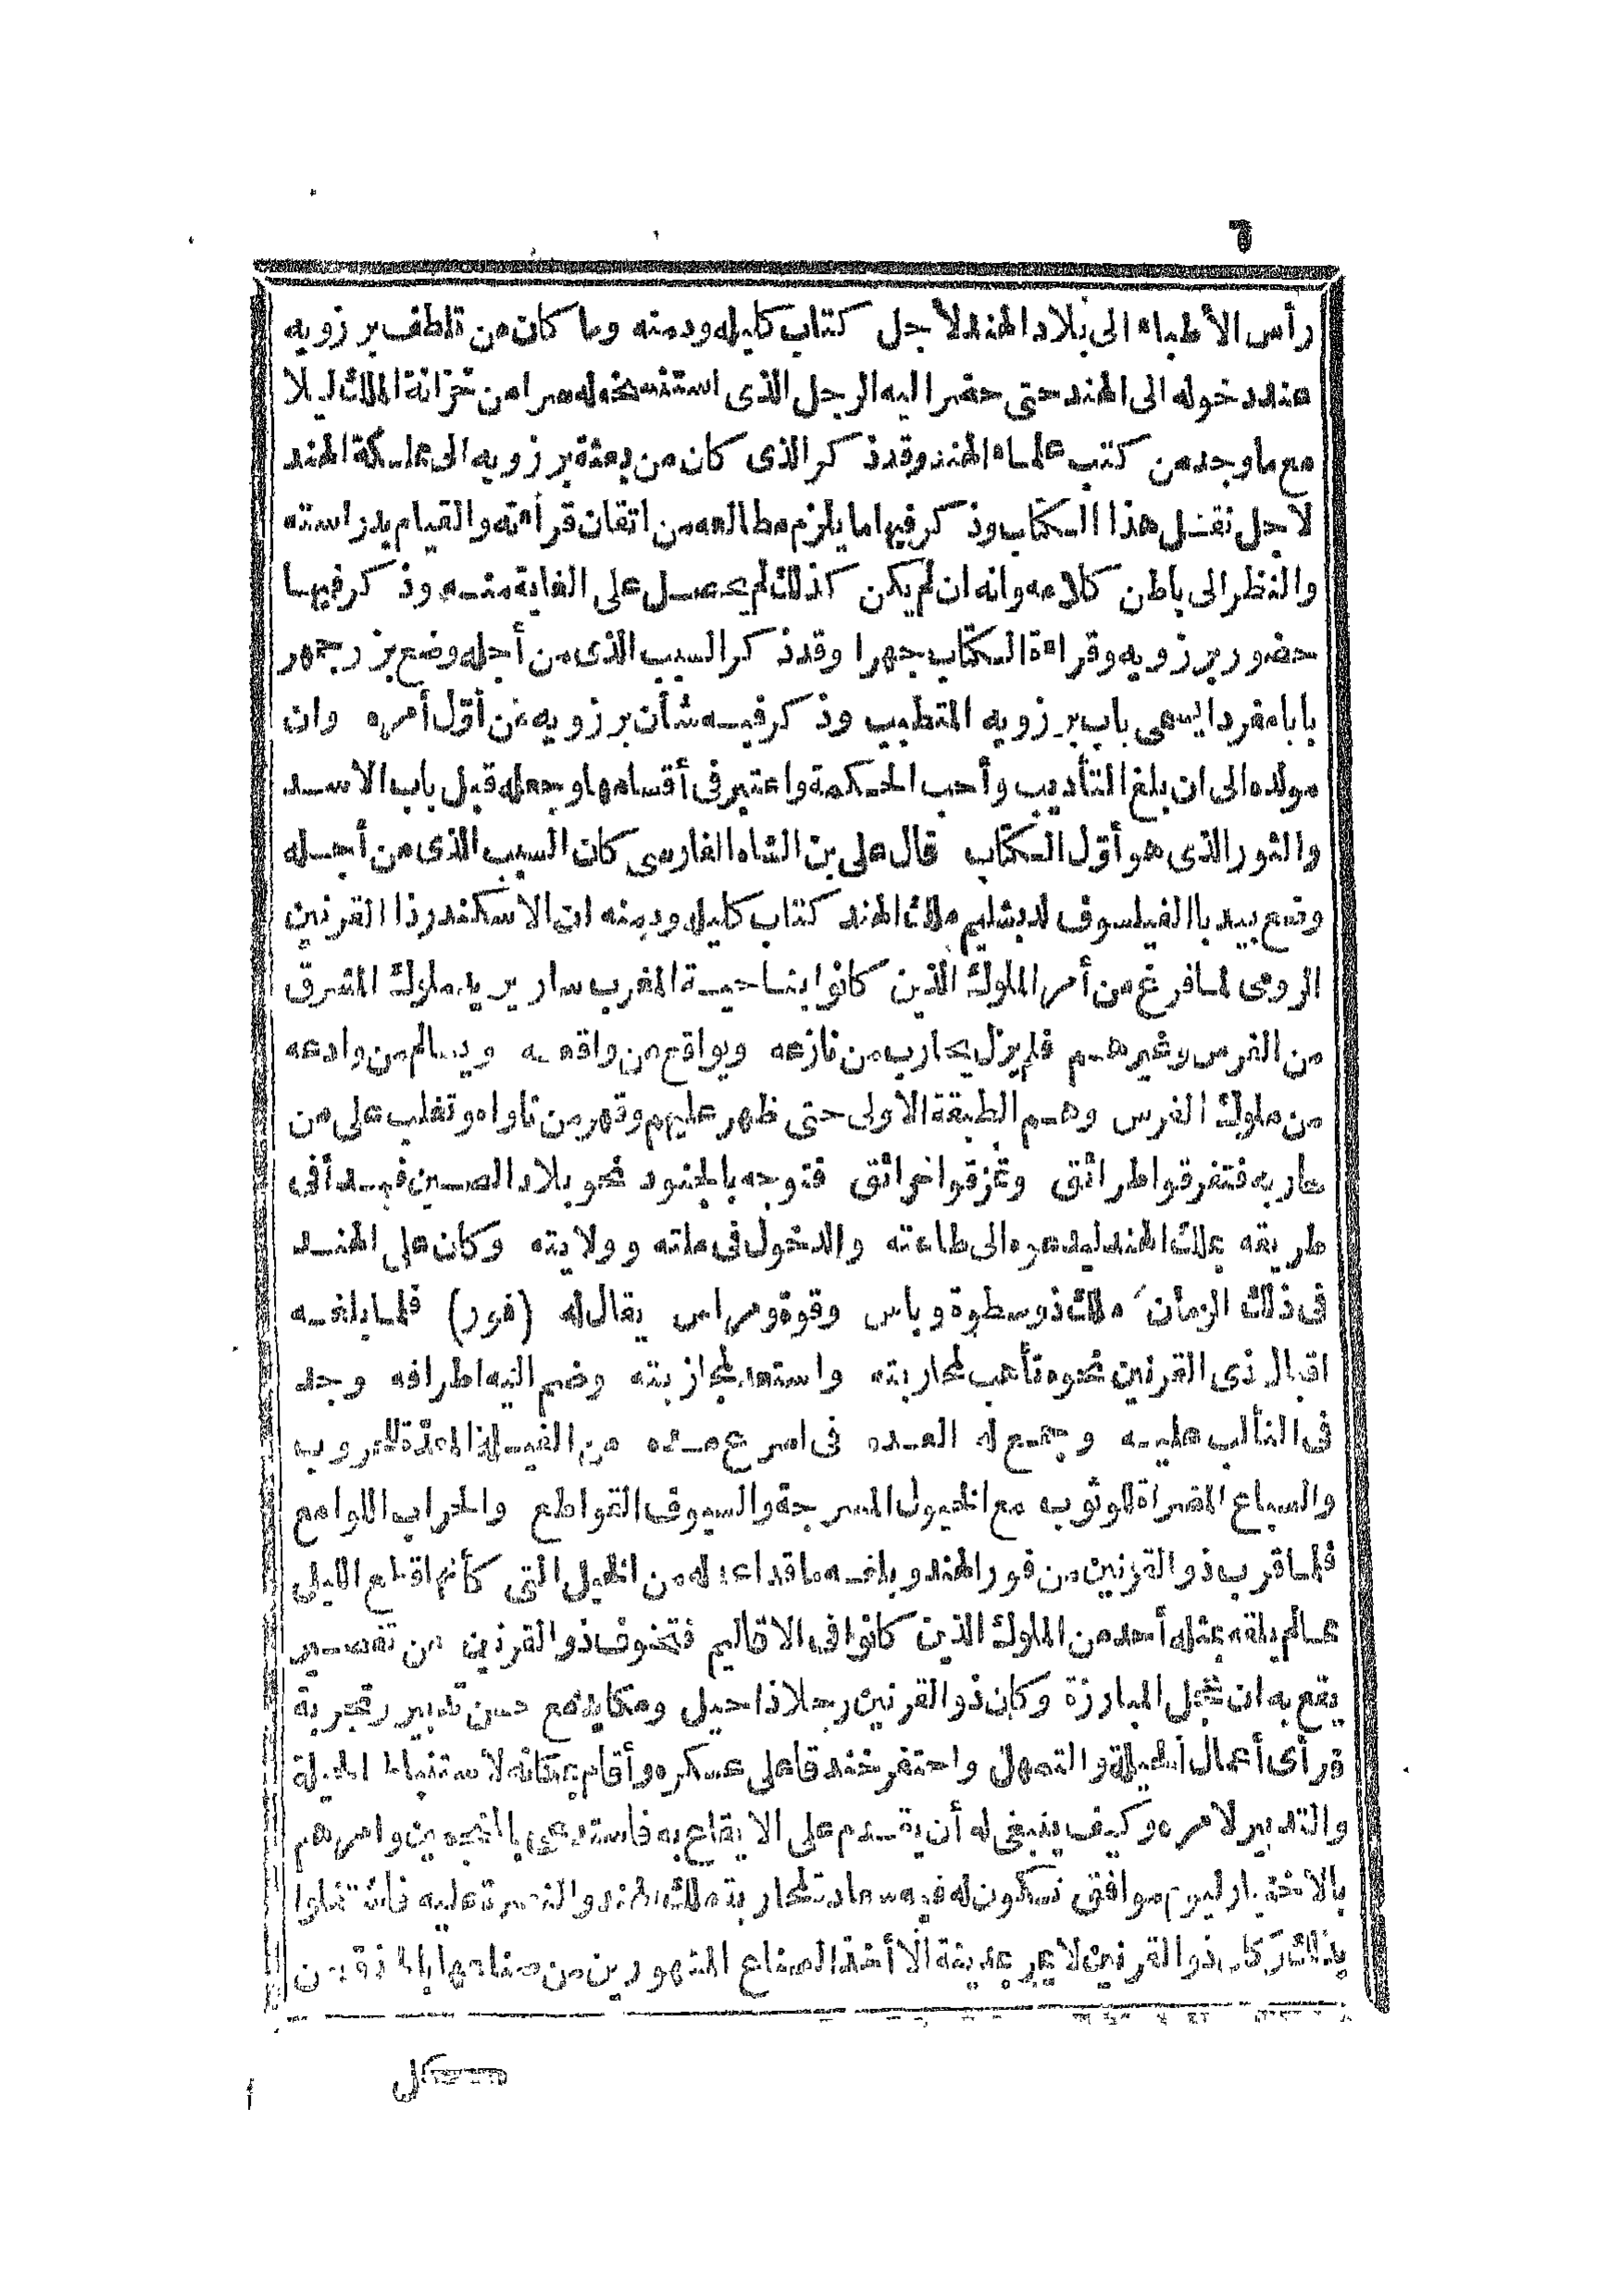 ٦
رأس الأطباء الى بلاد الهند لأجل كتاب كليله ودمنه وما كان من تلطف برزويه
عند دخوله الى الهند حتى حضر اليه الرجل الذى استنسخه له سرا من خزانة الملك ليلا
مع ما وجد من كتب علماء الهند وقد ذكر الذى كان من بعثة برزويه الى مملكة الهند
لاجل نقل هذا الكتاب وذكر فيها ما يلزم مطالعه من اتقان قراءته والقيام بدراسته
والنظر الى باطن كلامه وانه ان لم يكن كذلك لم يحصل على الغاية منه وذكر فيها
حضور برزويه وقراءة الكتاب جهرا وقد ذكر السبب الذى من أجله وضع بزرجمهر
بابا مفردا يسمى باب برزويه المتطبب وذكر فيه شأن برزويه من أوّل أمره وان
مولده الى ان بلغ التأديب وأحب الحكمة واعتبر فى أقسامها وجعله قبل باب الاسد
والثور الذى هو أوّل الكتاب قال على بن الشاه الفارسى كان السبب الذى من أجله
وضع بيدبا الفيلسوف لدبشليم ملك الهند كتاب كليله ودمنه ان الاسكندر ذا القرنين
الرومى لما فرغ من أمر الملوك الذين كانوا بناحية المغرب سار يريد ملوك المشرق
من الفرس وغيرهم فلم يزل يحارب من نازعه ويواقع من واقعه ويسالم من وادعه
من ملوك الفرس وهم الطبقة الاولى حتى ظهر عليهم وقهر من ناواه وتغلب على من
حاربه فتفرقوا طرائق وتمزقوا خرائق فتوجه بالجنود نحو بلاد الصين فبدأ فى
طريقه بملك الهند ليدعوه الى طاعته والدخول فى ملته وولايته وكان على الهند
فى ذلك الزمان ملك ذو سطوة وباس وقوة ومراس يقال له (فور) فلما بلغه
اقبال ذى القرنين نحوه تأهب لمحاربته واستعد لمجاذبته وضم اليه اطرافه وجد
فى التألب عليه وجمع له العده فى اسرع مده من الفيلة المعدّة للحروب
والسباع المضراة للوثوب مع الخيول المسرجة والسيوف القواطع والحراب اللوامع
فلما قرب ذو القرنين من فور الهند وبلغه ما قد اعد له من الخيل التى كأنها قطع الليل
مما لم يلقه بمثله أحد من الملوك الذين كانوا فى الاقاليم فتخوف ذو القرنين من تقصير
يقع به ان عجل المبارزة وكان ذو القرنين رجلا ذا حيل ومكايد مع حسن تدبير وتجربة
فرأى أعمال الحيلة والتمهل واحتفر خندقا على عسكره وأقام بمكانه لاستنباط الحيلة
والتدبير لامره وكيف ينبغى له أن يقدم على الايقاع به فاستدعى بالمنجمين وامرهم
بالاختيار ليوم موافق تكون له فيه سعادة لمحاربة ملك الهند والنصرة عليه فاشتغلوا
بذلك وكان ذو القرنين لا يمر بمدينة الا أخذ الصناع المشهورين من صناعها بالحذق من
كل